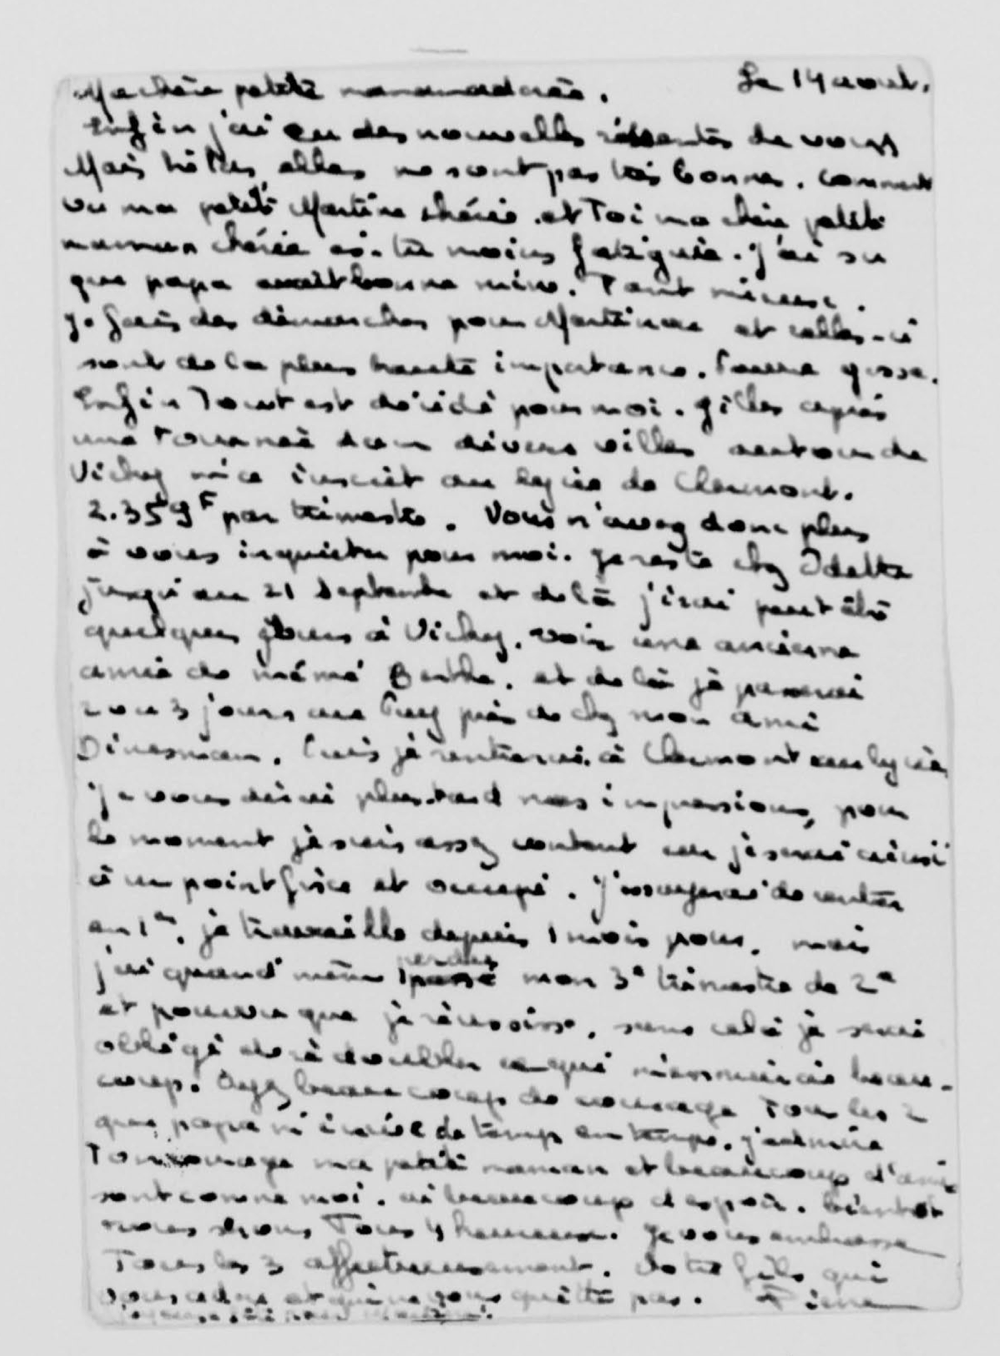 Le 14 aout.
Ma chérie petite maman adorée.
Enfin j'ai eu des nouvelles récentes de vous
Mais hélas elles ne sont pas très bonnes. comment
va ma petite Martine chérie. et Toi ma chérie petite
maman chérie es-tu moins fatiguée. J'ai su
que papa avait bonne mine. Tant mieux.
Je fais des démarches pour Martine et celles-ci
sont de la plus haute importance. Pauvre gosse.
Enfin Tout est décidé pour moi. Gilles après
une Tournée dans divers villes autour de
Vichy m'a inscrit au lycée de Clermont.
2.359F par trimestre. Vous n'avez donc plus
à vous inquieter pour moi. Je reste chez Odette
jusqu'au 21 Septembre et de là j'irai peut être
quelques jours à Vichy. voir une ancienne
amie de mémé Berthe. et de là je passerai
2 ou 3 jours au Puy près de chez mon ami
Puis je rentrerai. à Clermont au lycée
Je vous dirai plus tard mes impressions, pour
le moment je suis assez content car je serai ainsi
à un point fixe et occupé. J'essayerai de rentrer
en 1ère. je travaille depuis 1 mois pour. mais
j'ai quand même perdu mon 3e trimestre de 2e
et pourvu que je réussisse. sans cela je serai
obligé de redoubler ce qui m'ennuirai beau-
coup. Ayez beaucoup de courage Tous les 2
que papa m'écrive de temps en temps. J'admire
Ton courage ma petite maman et beaucoup d'amis
sont comme moi. ai beaucoup d'espoir. bientôt
nous serons Tous 4 heureux. Je vous embrasse
Tous les 3 affectueusement. Votre fils qui
vous adore et qui ne vous quitte pas. Pierre